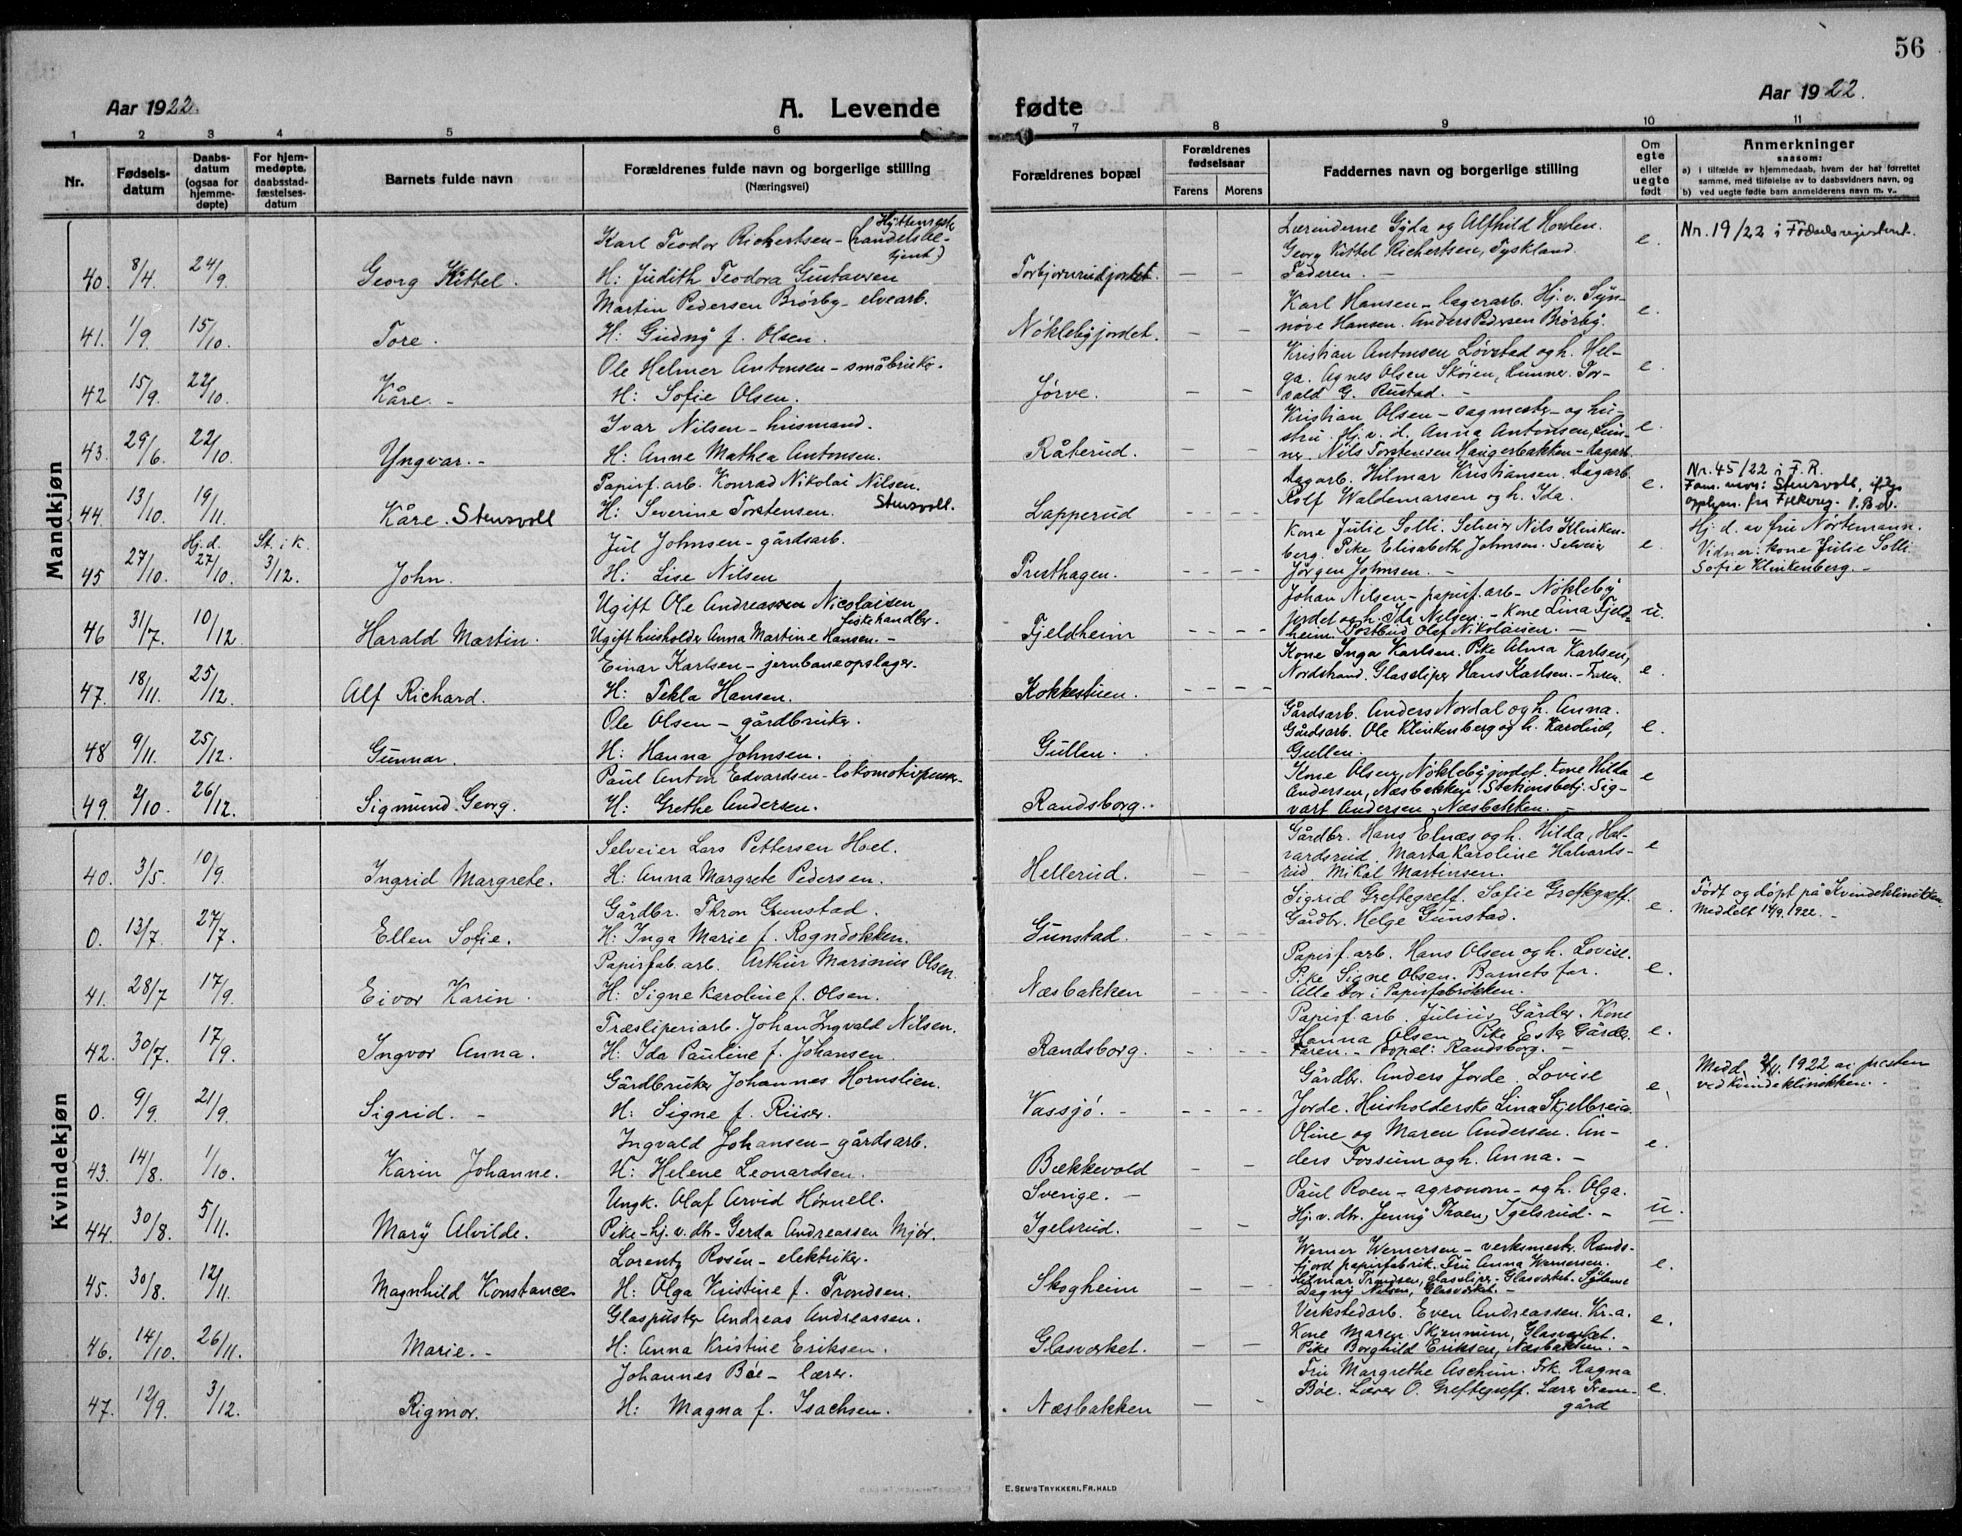 56
Aar 1922.
A. Levende fødte
Aar 1922.
1 2 3 4 5 6 7 8 9 10 11
Nr.
Fødsels-datum
Daabs-datum (ogsaa for hjemme-døpte)
For hjem-medøpte, daabsstad-fæstelses-datum
Barnets fulde navn
Forældrenes fulde navn og borgerlige stilling
(Næringsvei)
Forældrenes bopæl
Forældrenes fødselsaar
Farens Morens
Faddernes navn og borgerlig stilling
Om egte eller uegte født
Anmerkninger
saasom:
a) i tilfælde av hjemmedaab, hvem der har forrettet
samme, med tilføielse av to daabsvidners navn, og
b) ved uegte fødte barn anmelderens navn m. v.
Mandkjøn
Karl Teodor Richertsen – (Hyttenæstr. handelsbe-tjent)
Lærerinderne Gyda og Alfhild Horden.
Georg Kittel Richertsen, Tyskland.
e.
Nr. 19/22 i Fødselsregisteret.
40. 8/4. 24/9. Georg Kittel. H: Judith Teodora Gustavsen Torbjørnrudjordet. – – Faderen. –
Martin Pedersen Brørby – elvearb. Karl Hansen – lagerarb. Hj. v. Syn-
41. 1/9. 15/10. Tore. H: Gudny f. Olsen. Nøklebyjordet. – – nøve Hansen. Anders Pedersen Brørby. e.
Ole Helmer Antonsen – småbruker. Kristian Antonsen Løvstad og h. Hel-
ga. Agnes Olsen Skøien, Lunner. Tor- e.
42 15/9. 22/10. Kåre. – H: Sofie Olsen. Jørve. – – vald G. Rustad. –
Ivar Nilsen – husmand. Kristian Olsen – sagmester – og hu-
stru. Hj. v. d. Anna Antonsen, Lun- e.
43. 29/6. 22/10. Yngvar. – H: Anne Mathea Antonsen. Råterud. – – ner. Nils Torstensen Haugerbakken – dagarb.
Papirf. arb. Konrad Nikolai Nilsen. Stensvoll. Dagarb. Hilmar Kristiansen. Dagarb. e.
44. 13/10. 19/11. Kåre Stensvoll H: Severine Torstensen. Lapperud Rolf Waldemarsen og h. Ida.
Nr. 45/22 i F. R.
Fam. navn: Stensvoll, iflg.
opplysn. fra
Hj. d. St. i k. Jul Johnsen – gårdsarb. Kone Julie Solli. Selveier Nils Klinken-
berg. Pike Elisabeth Johnsen. Selveier e
45 27/10. 27/10. 3/12. John. H: Lise Nilsen Presthagen. Jørgen Johnsen. –
Hj. d. av fru Nørtemann.
Vidner: kone Julie Solli
Sofie Klinkenberg. –
Ugift Ole Andreassen Nicolaisen fiskehandler. Johan Nilsen – papirf. arb – Nøkleby
jordet og h. Ida Nilsen. – Kone Lina Fjeld- u.
46 31/7. 10/12. Harald Martin. Ugift husholder. Anna Martine Hansen. – Fjeldheim heim. Postbud Olaf Nikolaisen. –
Einar Karlsen – jernbaneopslager. Kone Inga Karlsen. Pike Alma Karlsen,
47. 18/11. 25/12. Alf Richard. H: Tekla Hansen. Kokkestuen. Nordstrand. Glassliper Hans Karlsen. – Faren. e.
Ole Olsen – gårdbruker. Gårdsarb. Anders Nordal og h. Anna.
Gårdsarb. Ole Klinkenberg og h. Karoline, e.
48 9/11. 25/12. Gunnar. H: Hanna Johnsen. Gullen. Gullen.
Paul Anton Edvardsen – lokomotivpuss. Kone Olsen, Nøklebyjordet. Kone Hilda e
Andersen, Næsbakken. Stationsbetj. Sig-
49. 2/10. 26/12. Sigmund Georg. H: Grethe Andersen. Randsborg. vart Andersen, Næsbakken. –
Kvindekjøn
Selveier Lars Pettersen Hoel. Gårdbr. Hans Elnæs og h. Hilda, Hal-
vardsrud. Marta Karoline Halvards- e
40. 3/5. 10/9. Ingrid Margrete. H: Anna Margrete Pedersen. Hellerud. – – rud Mikal Martinsen.
Gårdbr. Thron Gunstad. Sigrid Greftegreff. Sofie Greftegreff. e.
0. 13/7. 27/7. Ellen Sofie. H: Inga Marie f. Rognbokken. Gunstad. Gårdbr. Helge Gunstad.
Født og døpt på Kvindeklinikken
Meddelt 14/9 1922. –
Papirfab. arb. Arthur Marinius Olsen. Papirf. arb. Hans Olsen og h. Lovise.
Pike Signe Olsen. Barnets far. e.
41. 28/7 17/9. Eivor Karin. H: Signe Karoline f. Olsen. Næsbakken Alle bor i Papirfabrikken.
Træsliperiarb. Johan Ingvald Nilsen. Papirf. arb. Julius Gårder. Kone
Hanna Olsen. Pike Gårder. e.
42. 30/7. 17/9. Ingvor Anna. H: Ida Pauline f. Johansen. Randsborg. Faren. – Bopæl: Randsborg. –
Gårdbruker Johannes Hornslien. Gårdbr. Anders Jorde. Lovise e.
0. 9/9. 21/9. Sigrid. – H: Signe f. Riiser. Vassjø. – Jorde. Husholderske Lina Skjelbreid.
Medd. 2/11 1922 av presten
ved kvindeklinikken.
Ingvald Johansen – gårdsarb. Oline og Maren Andersen. An- e.
43. 14/8. 1/10. Karin Johanne. H: Helene Leonardsen. Bækkevold – – ders Fossum og h. Anna. –
Ungk. Olaf Arvid Hörnell. Sverige. – Paul Roen – agronom – og h. Olga. u.
44. 30/8. 5/11. Mary Alvilde. Pike – hj. v. dtr. Gerda Andreassen Mjør. Igelsrud. – – Hj. v. dtr. Jenny Thoen, Igelsrud. –
Lorentz Rosén – elektriker. Werner Wernersen – verksmestr. Rands-
fjord papirfabrik. Fru Anna Wernersen. e.
45. 30/8. 12/11. Magnhild Konstance. H: Olga Kristine f. Trondsen. Skogheim – – Hilmar Trondsen, glassliper. Glasværket.
Dagny Nilsen, Glasværket. –
Glaspuster Andreas Andreassen. Verkstedarb. Even Andreassen. Kr.a. e.
46. 14/10. 26/11. Marie. – H: Anna Kristine Eriksen. Glasværket. – – Kone Maren Skjenum, Glasværket.
Pike Borghild Eriksen, Næsbakken. –
Johannes Bøe – lærer. Fru Margrethe Aschim. Frk. Ragna
47. 12/9. 3/12. Rigmor. H: Magna f. Isachsen. Næsbakken – – Bøe. Lærer O. Greftegreff. Lærer Fram-gård e.
E. SEM'S TRYKKERI, FR.HALD